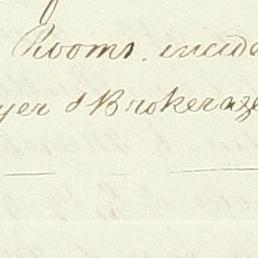 Rooms. incide
yer & Brokerage